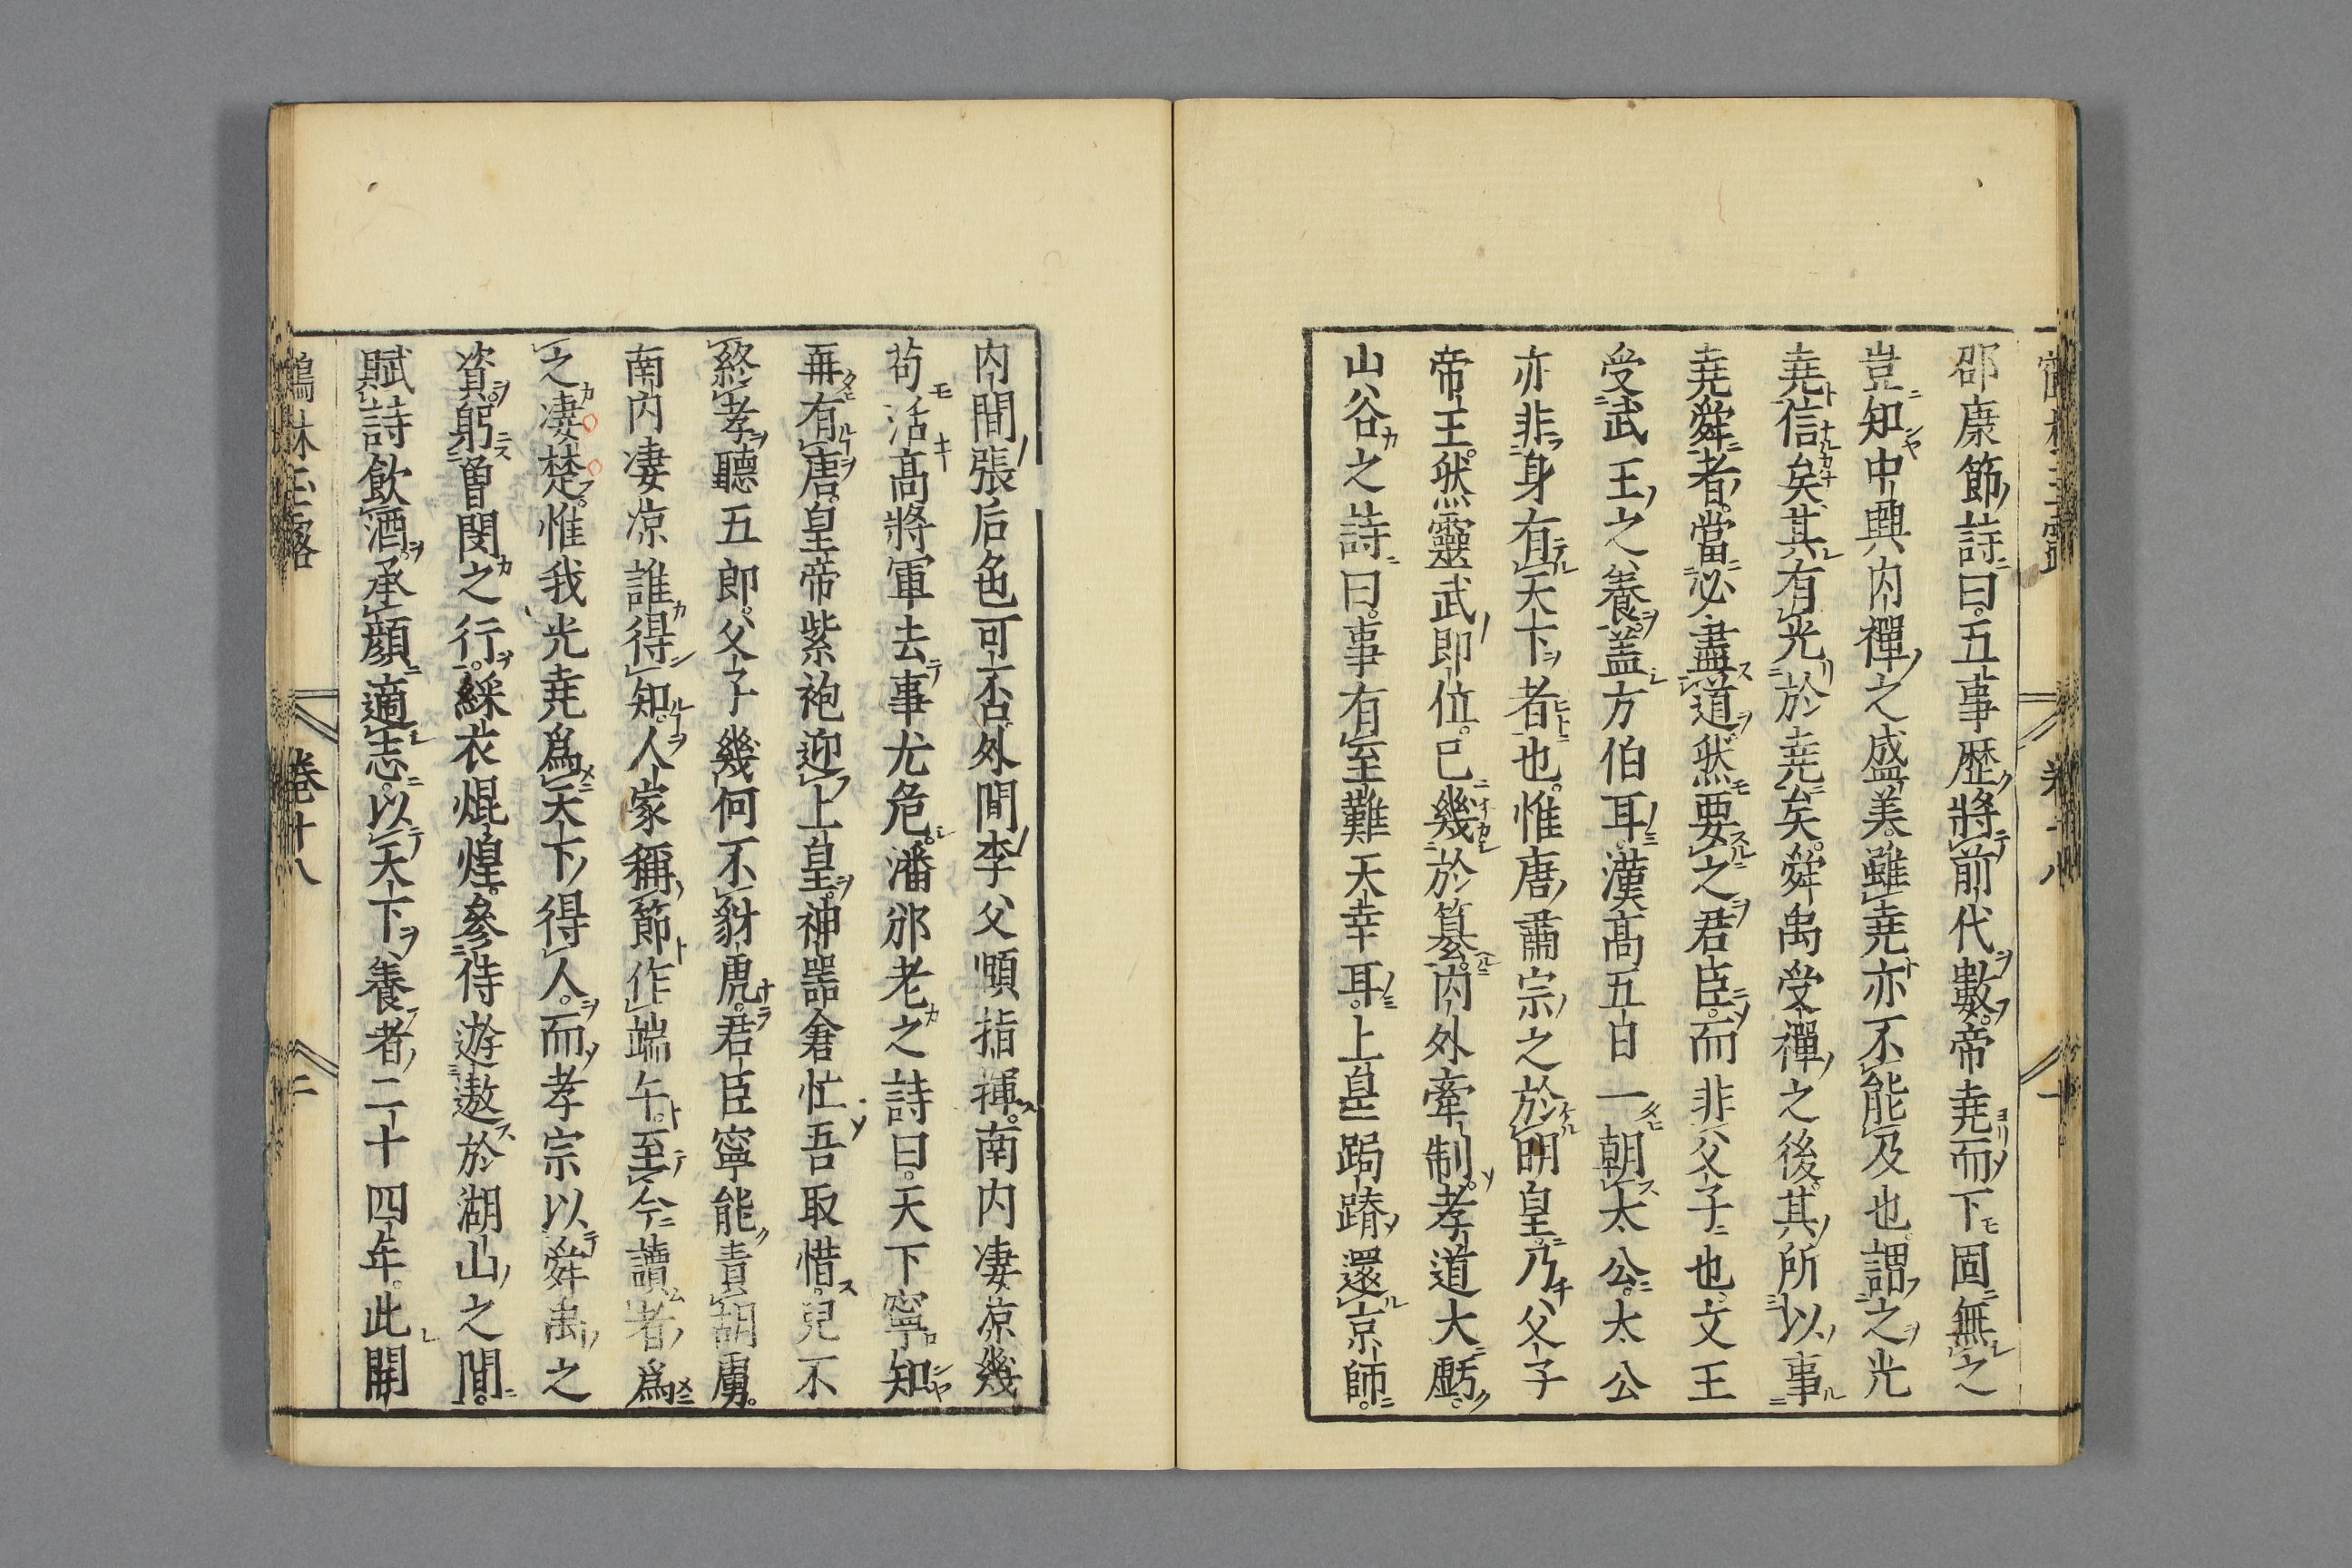 邵康節詩曰。五事歴將前代數。帝堯而下固無之
豈知中興内禪之盛美。雖堯亦不能及也。謂之光
堯信矣。其有光於堯矣。舜禹受禪之後。其所以事
堯舜者。當必盡道。然要之君臣。而非父子也。文王
受武王之養。蓋方伯耳。漢髙五日一朝太公。太公
亦非身有天下者也。惟唐肅宗之於明皇。乃父子
帝王。然靈武即位。已幾於簒。内外牽制。孝道大虧。
山谷之詩曰。事有至難天幸耳。上皇跼蹐還京師。
内間張后色可否。外間李父頤指揮。南内凄凉幾
苟活。髙將軍去事尤危。潘邠老之詩曰。天下寧知
再有唐。皇帝紫袍迎上皇。神噐倉忙吾取惜。兒不
終孝聽五郎。父子幾何不豺虎。君臣寧能責胡虜。
南内凄凉誰得知。人家稱節作端午。至今讀者爲
之凄楚。惟我光堯爲天下得人。而孝宗以舜禹之
資。躬曽閔之行。綵衣焜煌。參侍遊遨於湖山之間。
賦詩飲酒。承顔適志。以天下養者二十四年。此開
鶴林玉露 卷十八 二